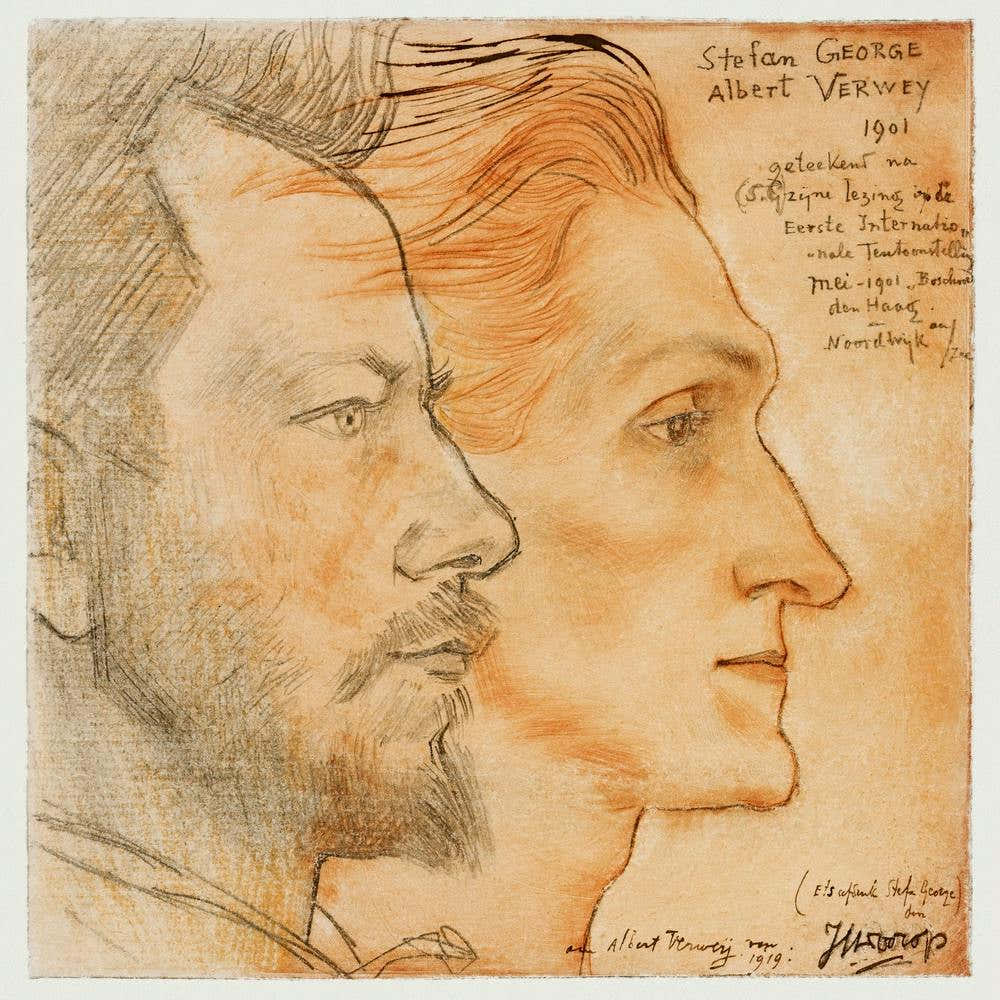 Stefan GEORGE
Albert VERWEY
1901
geteekend na
(S.G) zijne lezing op de
Eerste Internatio„
„nale Tentoonstelling
Mei - 1901 „
den Haag.
Noordwijk aan/Zee
Stefan George
an Albert Verweij van.
1919.
JThToorop